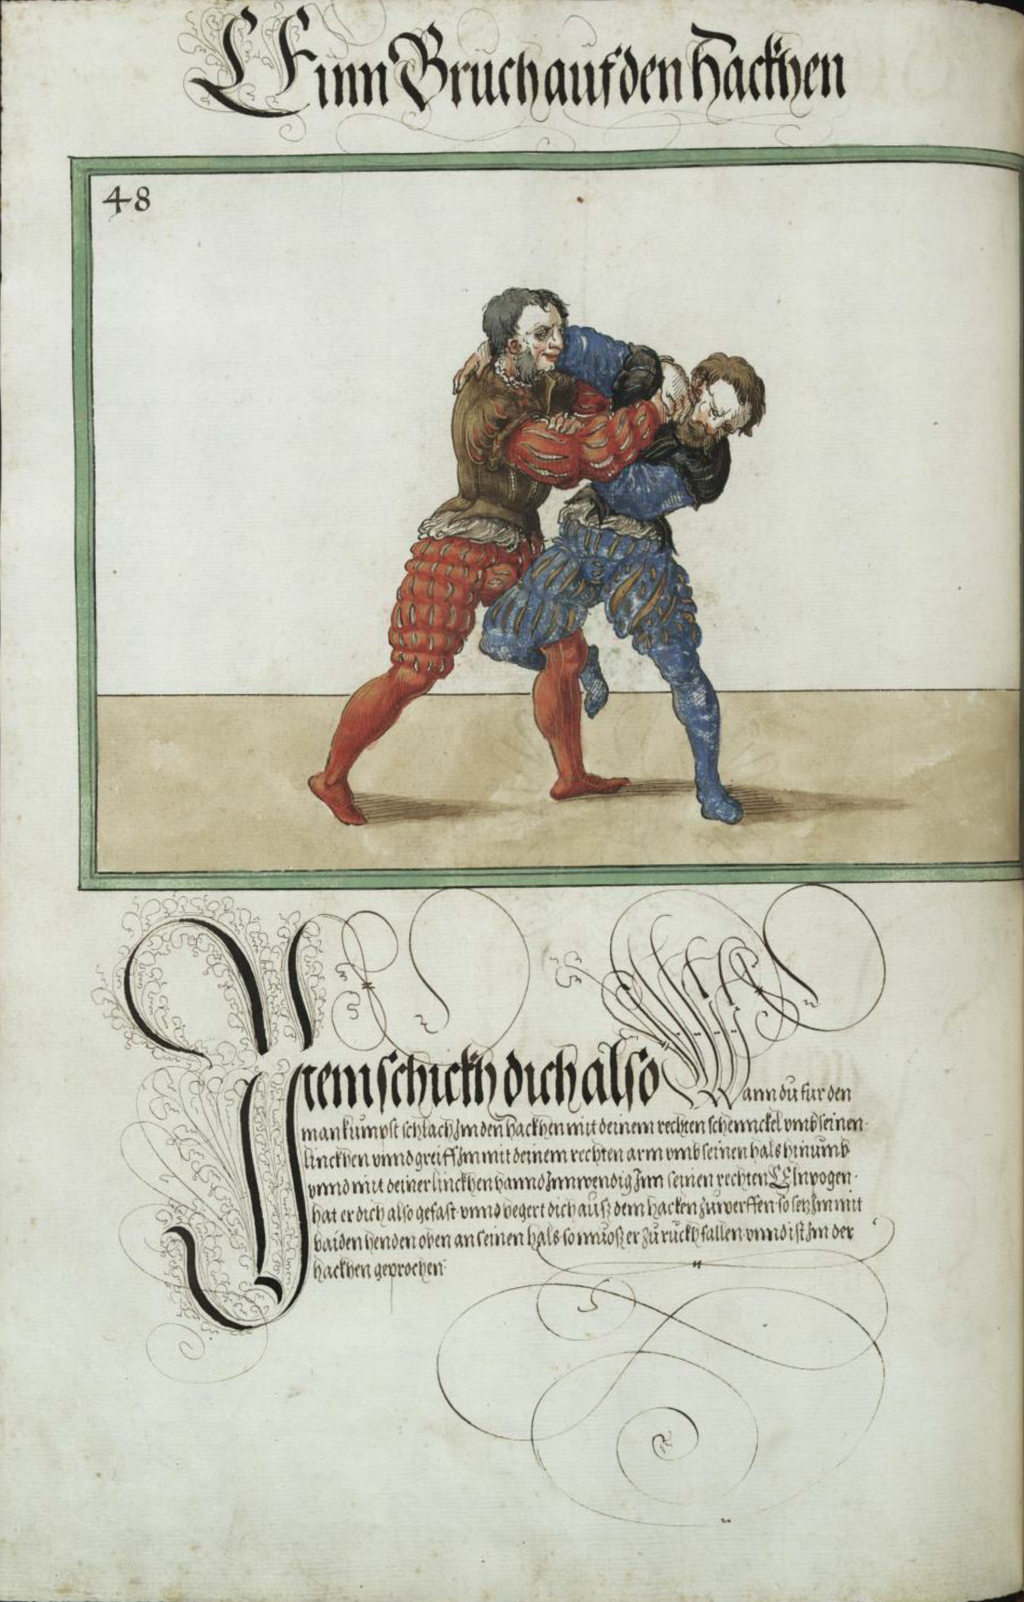 Einn Bruch auf den hackhen
48
Item schickh dich also Wann du fur den
man kumpst schlach Im den hackhen mit deinem rechten schennckel vmb seinen
linckhen vnnd greiff Im mit deinem rechten arm vmb seinen hals hinumb
vnnd mit deiner linckhen hannd Innwendig Inn seinen rechten Elnpogen
hat er dich also gefast vnnd begert dich ausz dem hacken zu werffen so setz Im mit
baiden henden oben an seinen hals so muosz er zu ruckh fallen vnnd ist Im der
hackhen geprochen